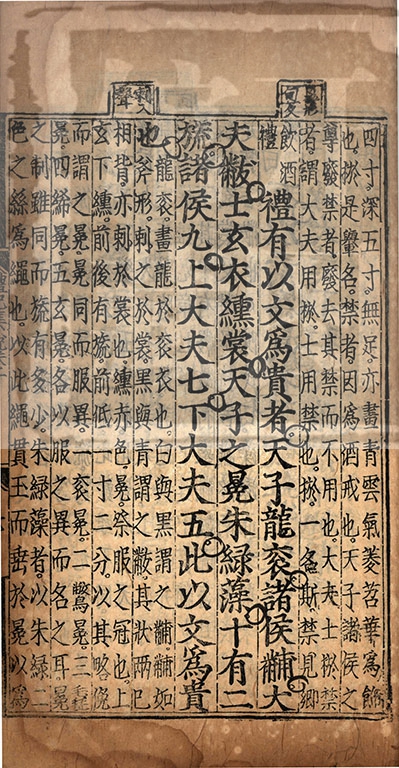 四寸深五寸無足亦畫青雲氣菱苕華爲飾
也棜是轝名禁者因爲酒戒也天子諸侯之
尊廢禁者廢去其禁而不用也大夫士棜禁
者謂大夫用棜士用禁也棜一名斯禁見鄉
飲酒
禮
禮有以文爲貴者天子龍袞諸侯黼大
夫黻士玄衣纁裳天子之冕朱綠藻十有二
旒諸侯九上大夫七下大夫五此以文爲貴
也
龍袞畫龍於袞衣也白與黑謂之黼黼如
斧形刺之於裳黑與青謂之黻其狀兩已
相背亦刺於裳也纁赤色冕祭服之冠也上
玄下纁前後有旒前低一寸二分以其略俛
而謂之冕冕同而服異一袞冕二鷩冕三毳
冕四絺冕五玄冕各以服之異而名之耳冕
之制雖同而旒有多少朱綠藻者以朱綠二
色之絲爲繩也以此繩貫玉而垂於冕以爲